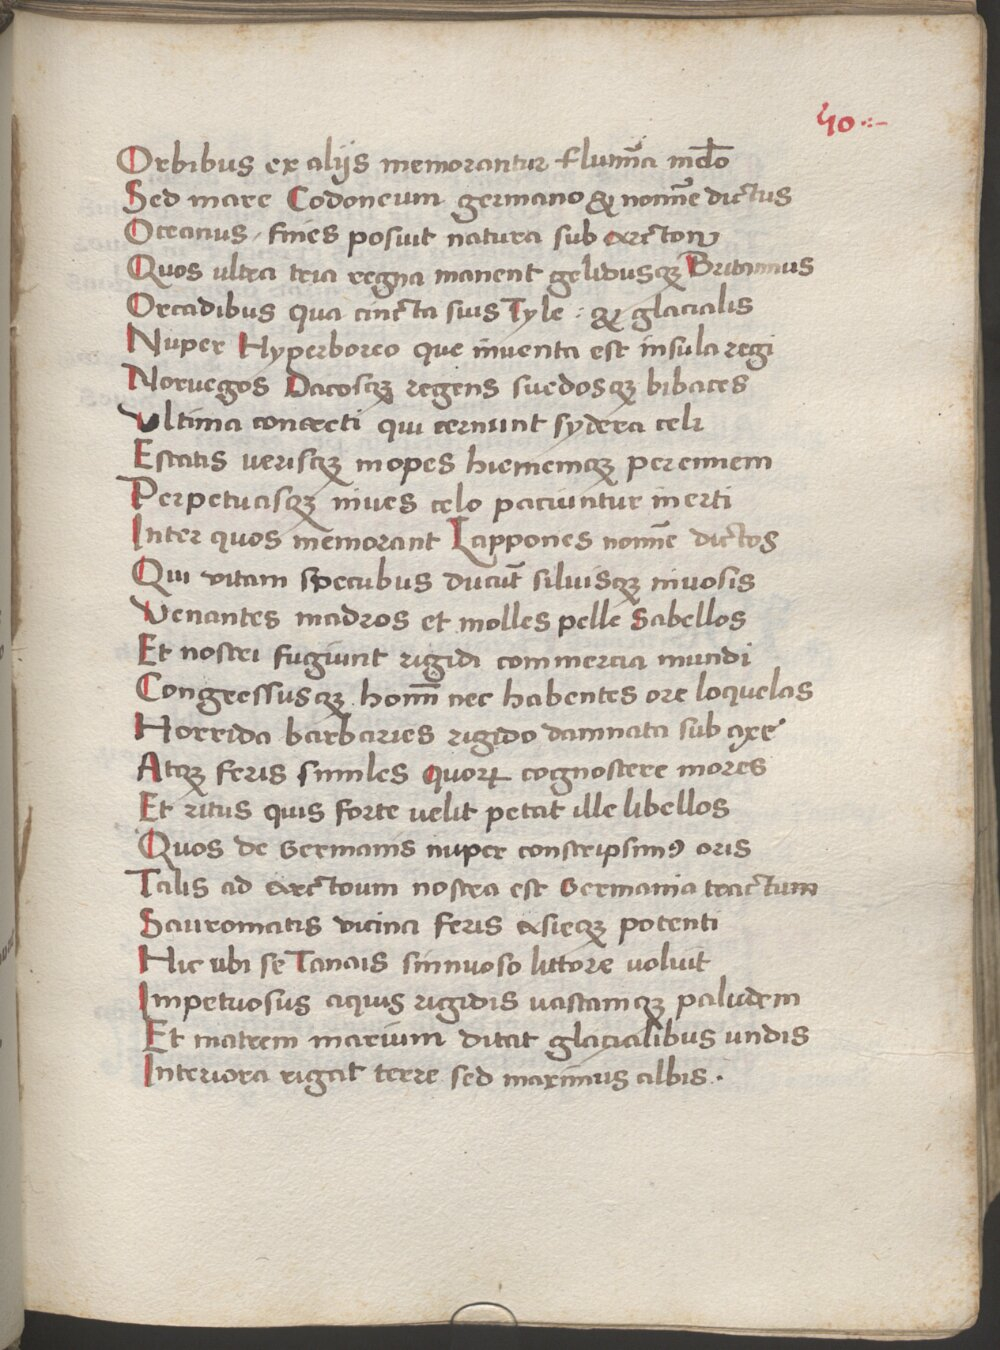 50
Orbibus ex alijs memorantur flumīa mōdo
Sed mare Codoneum germano & nomīe dictus
Oceanus, fines posuit natura sub arcton
Quos ultra tria regna manent gelidusqȝ Britannus
Orcadibus qua cincta suis Tyle : & glacialis
Nuper Hyperboreo que inventa est insula regi
Noruegos Dacosqȝ regens suedosqȝ bibaces
Ultima concreti qui cernunt sydera celi
Estatis uerisqȝ inopes hiememqȝ perennem
Perpetuasqȝ niues celo paciuntur inerti
Inter quos memorant Lappones nomīe dictos
Qui vitam specubus ducūt siluisqȝ niuosis
Venantes madros et molles pelle Sabellos
Et nostri fugiunt rigidi commercia mundi
Congressusqȝ homīn nec habentes ore loquelas
Horrida barbaries rigido damnata sub axe
Atqȝ feris similes quorꝝ cognoscere mores
Et ritus quis forte uelit petat ille libellos
Quos de Germanis nuper conscripsimꝰ oris
Talis ad arctoum nostra est Germania tractum
Sauromatis vicina feris asieqȝ potenti
Hic ubi se Tanais sinnuoso littore uoluit
Impetuosus aquis rigidis uastamqȝ paludem
Et matrem marium ditat glacialibus undis
Interiora rigat terre sed maximus albis.